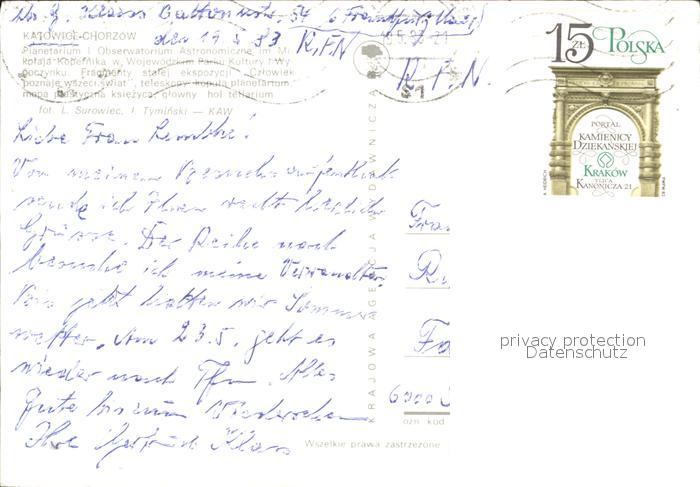 54 6 Frankfurt/Main
KATOWICE-CHORZÓW
den 19 5 83 R.F.N
Planetarium i Obserwatorium Astronomiczne im Mi
kołaja Kopernika w Wojewódzkim Parku Kultury i Wy
poczynku. Fragmenty stałej ekspozycji „Człowiek
poznaje wszechświat", teleskopy, kopuła planetarium,
mapa księżyca, główny hol
fot. L. Surowiec, I. Tymiński — KAW
R.F.N.
15 ZŁ POLSKA
PORTAL
KAMIENICY
DZIEKAŃSKIEJ
KRAKÓW
ULICA
KANONICZA 21
A. HEIDRICH
Liebe Frau
Von meinem Besuchsaufenthalt
sende ich Ihnen recht herzliche
Grüsse. Der Reihe nach
besuche ich meine Verwandten.
Bis jetzt hatten wir Sommer
wetter. Am 23.5. geht es
wieder nach Ffm. Alles
Gute bis zum Wiedersehen
Ihre Gertrud Klass
KRAJOWA AGENCJA WYDAWNICZA
Fra
R
Fa
6000
ozn kod
Wszelkie prawa zastrzeżone
privacy protection
Datenschutz